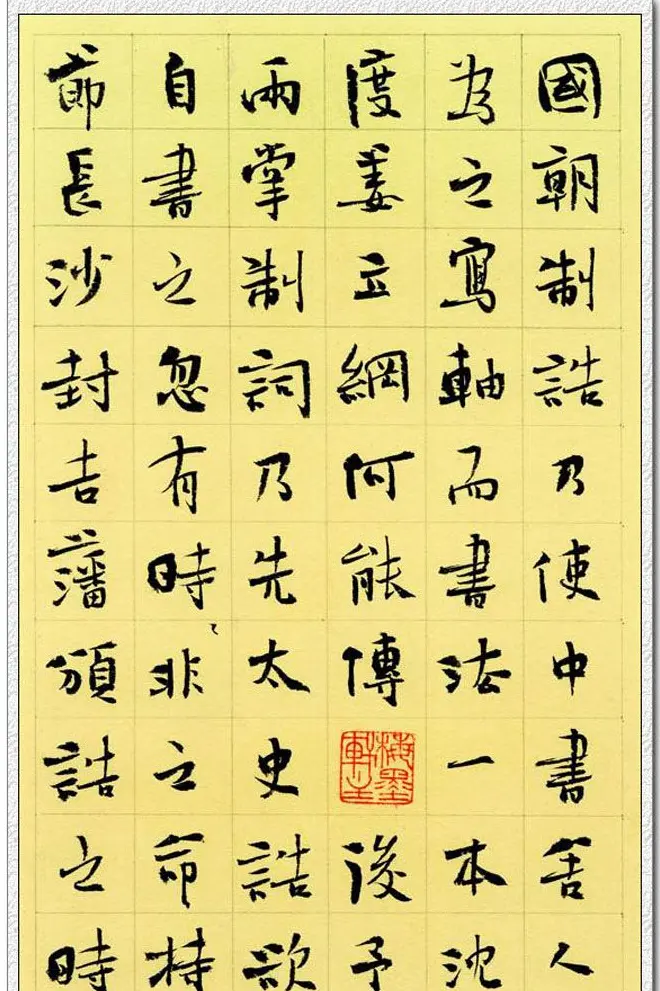 國朝制誥乃使中書舍人
為之寫軸而書法一本沈
度姜立綱何能傳後予
兩掌制詞乃先太史誥欲
自書之忽有時非之命持
節長沙封吉藩頒誥之時